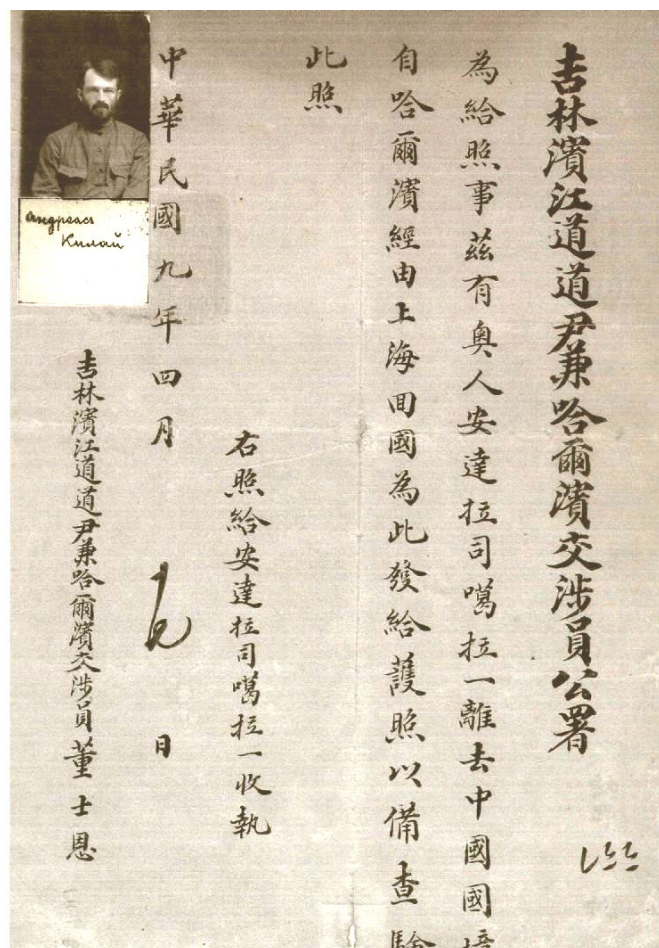 吉林濱江道道尹兼哈爾濱交涉員公署
為給照事茲有奧人安達拉司噶拉一離去中國國境
自哈爾濱經由上海回國為此發給護照以備查驗
此照
右照給安達拉司噶拉一收執
中華民國九年四月
日
吉林濱江道道尹兼哈爾濱交涉員董士恩
Андреасъ
Килай